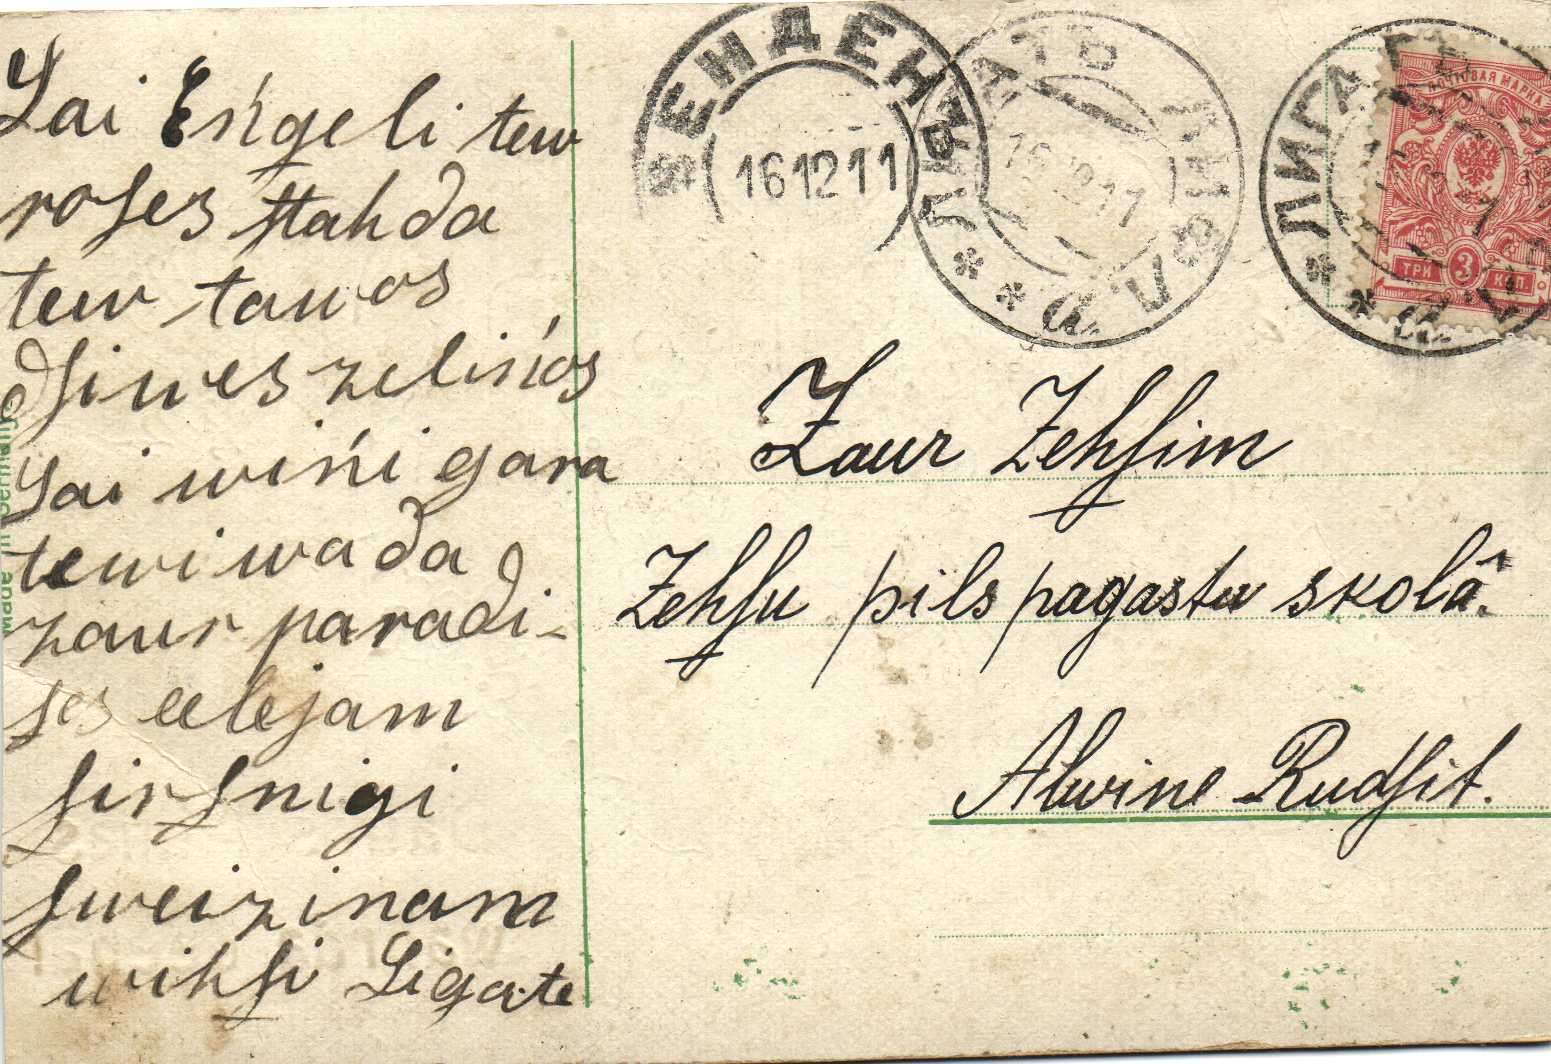 Lai Eńgeli tew
roſes ſtahda
tew tawos
dſiwes zelińos
Lai wińi gara
tewi wada
zaur paradi-
ſes eelejam
ſirſnigi
ſweizinam
wihſi Ligate
ВЕНДЕНЪ
161211
ЛИГАТЪ ЛИФЛ.
* * a
16 12 11
ЛИГАТЪ
* * a
ПОЧТОВАЯ МАРКА
ТРИ 3 КОП.
Zaur Zehſim
Zehſu pils pagasta skolâ.
Alwine Rudſit.
Made in Germany.